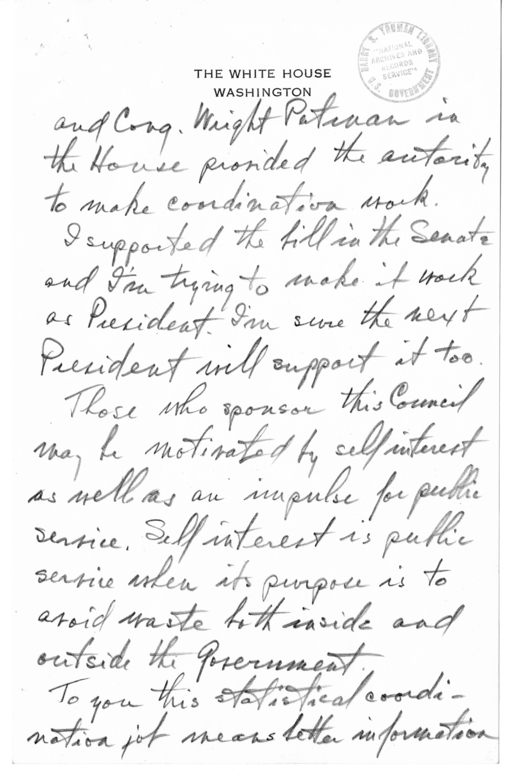 HARRY S. TRUMAN LIBRARY
"NATIONAL
ARCHIVES AND
RECORDS
SERVICE"
U.S. GOVERNMENT
THE WHITE HOUSE
WASHINGTON
and Cong. Wright Patman in
the House provided the autority
to make coordination work.
I supported the bill in the Senate
and I'm trying to make it work
as President. I'm sure the next
President will support it too.
Those who sponsor this Council
may be motivated by self interest
as well as an impulse for public
service. Self interest is public
service when its purpose is to
avoid waste both inside and
outside the Government.
To you this statistical coordi-
nation job means better information